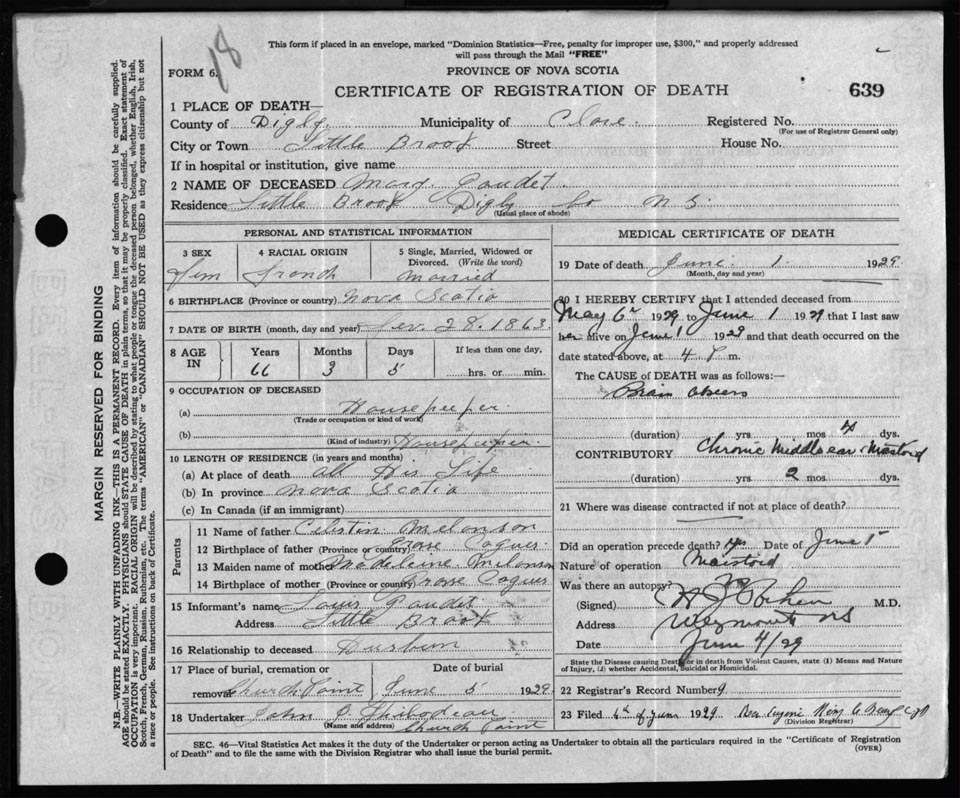 18
This form if placed in an envelope, marked "Dominion Statistics—Free, penalty for improper use, $300," and properly addressed
will pass through the Mail "FREE"
FORM 6.
PROVINCE OF NOVA SCOTIA
CERTIFICATE OF REGISTRATION OF DEATH
639
1 PLACE OF DEATH—
County of Digby. Municipality of Clare. Registered No.
(For use of Registrar General only)
City or Town Little Brook Street House No.
If in hospital or institution, give name
2 NAME OF DECEASED Mary. Gaudet.
Residence Little Brook Digby Co N S.
(Usual place of abode)
PERSONAL AND STATISTICAL INFORMATION
3 SEX
Fem
4 RACIAL ORIGIN
French
5 Single, Married, Widowed or
Divorced. (Write the word)
Married
6 BIRTHPLACE (Province or country) Nova Scotia
7 DATE OF BIRTH (month, day and year) 28. 1863.
8 AGE IN
Years
66
Months
3
Days
5
If less than one day,
hrs. or min.
9 OCCUPATION OF DECEASED
(a) Housekeeper.
(Trade or occupation or kind of work)
(b) Housekeeper.
(Kind of industry)
10 LENGTH OF RESIDENCE (in years and months)
(a) At place of death all His Life
(b) In province Nova Scotia
(c) In Canada (if an immigrant)
Parents
11 Name of father Celestin Melonson
12 Birthplace of father (Province or country) Grosse Coques.
13 Maiden name of mother Madeleine Milonson
14 Birthplace of mother (Province or country) Grosse Coques
15 Informant's name Louis Gaudet
Address Little Brook
16 Relationship to deceased Husben
17 Place of burial, cremation or
removal Church Point
Date of burial
June 5 1929
18 Undertaker John P Thibodeau
(Name and address) Church Point
MEDICAL CERTIFICATE OF DEATH
19 Date of death June. 1. 1929.
(Month, day and year)
20 I HEREBY CERTIFY that I attended deceased from
May 6th 1929 to June 1 1929 that I last saw
her alive on June 1 1929 and that death occurred on the
date stated above, at 4 P m.
The CAUSE of DEATH was as follows:—
Brain abscess
(duration) yrs. mos. 4 dys.
CONTRIBUTORY Chronic Middle ear & Mastoid
(duration) yrs. 2 mos. dys.
21 Where was disease contracted if not at place of death?
Did an operation precede death? yes Date of June 1st
Nature of operation Mastoid
Was there an autopsy? no
(Signed) M.D.
Address Weymouth NS
Date June 4/29
State the Disease causing Death, or in death from Violent Causes, state (1) Means and Nature
of Injury, (2) whether Accidental, Suicidal or Homicidal.
22 Registrar's Record Number 9.
23 Filed 4th of June 1929
(Division Registrar)
SEC. 46—Vital Statistics Act makes it the duty of the Undertaker or person acting as Undertaker to obtain all the particulars required in the "Certificate of Registration
of Death" and to file the same with the Division Registrar who shall issue the burial permit.
(OVER)
MARGIN RESERVED FOR BINDING
N.B.—WRITE PLAINLY WITH UNFADING INK—THIS IS A PERMANENT RECORD. Every item of information should be carefully supplied.
AGE should be stated EXACTLY. PHYSICIANS should STATE CAUSE OF DEATH in plain terms, so that it may be properly classified. Exact statement of
OCCUPATION is very important. RACIAL ORIGIN will be described by stating to what people or tongue the deceased person belonged, whether English, Irish,
Scotch, French, German, Russian, Ruthenian, etc. The terms "AMERICAN" or "CANADIAN" SHOULD NOT BE USED as they express citizenship but not
a race or people. See instructions on back of Certificate.